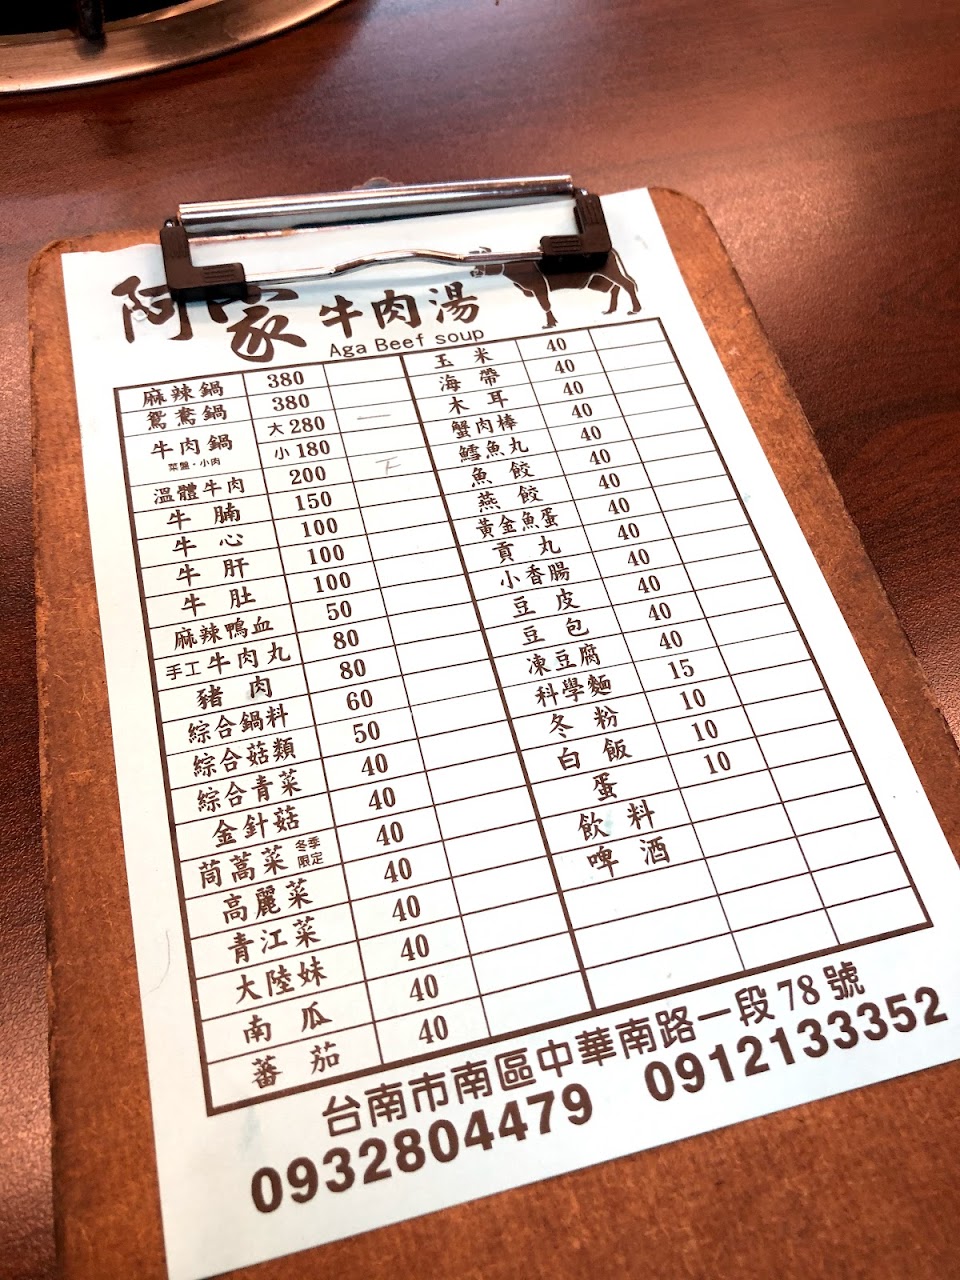 阿家牛肉湯
Aga Beef soup
麻辣鍋 380
鴛鴦鍋 380 一
牛肉鍋 菜盤·小肉 大280
小180
溫體牛肉 200
牛腩 150
牛心 100
牛肝 100
牛肚 100
麻辣鴨血 50
手工牛肉丸 80
豬肉 80
綜合鍋料 60
綜合菇類 50
綜合青菜 40
金針菇 40
茼蒿菜 冬季限定 40
高麗菜 40
青江菜 40
大陸妹 40
南瓜 40
蕃茄 40
玉米 40
海帶 40
木耳 40
蟹肉棒 40
鱈魚丸 40
魚餃 40
燕餃 40
黃金魚蛋 40
貢丸 40
小香腸 40
豆皮 40
豆包 40
凍豆腐 40
科學麵 15
冬粉 10
白飯 10
蛋 10
飲料
啤酒
台南市南區中華南路一段78號
0932804479 0912133352